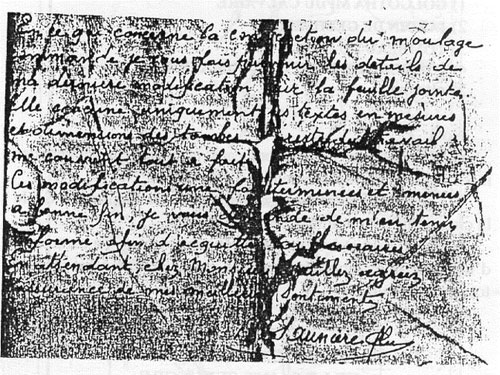 En ce qui concerne la confection du moulage
commandé je vous fais parvenir les détails de
ma dernière modification sur la feuille jointe
Elle concerne uniquement les textes en mesures
et dimensions des tombes travail
me convient tout à fait
Ces modifications une fois terminées et menées
à bonne fin, je vous de m'en tenir
informé afin d'acquitter honoraires
en attendant cher Monsieur veuillez agréez
l'assurance de mes meilleurs sentiments
Saunière